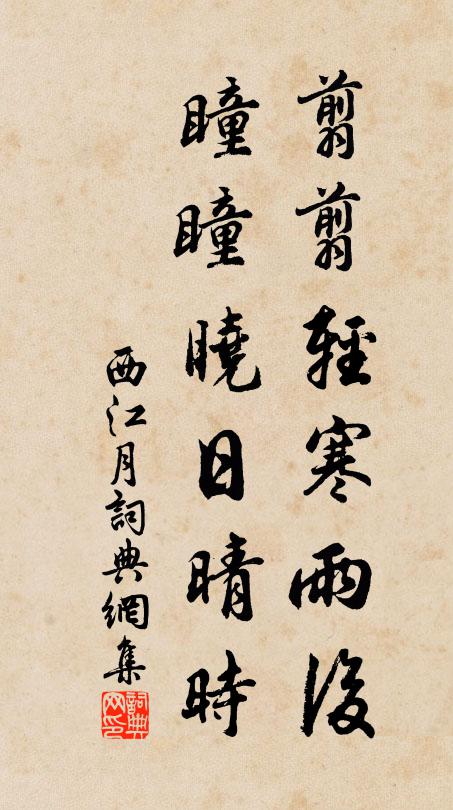 翦翦輕寒雨後
瞳瞳曉日晴時
西江月詞典網集
詞典网印